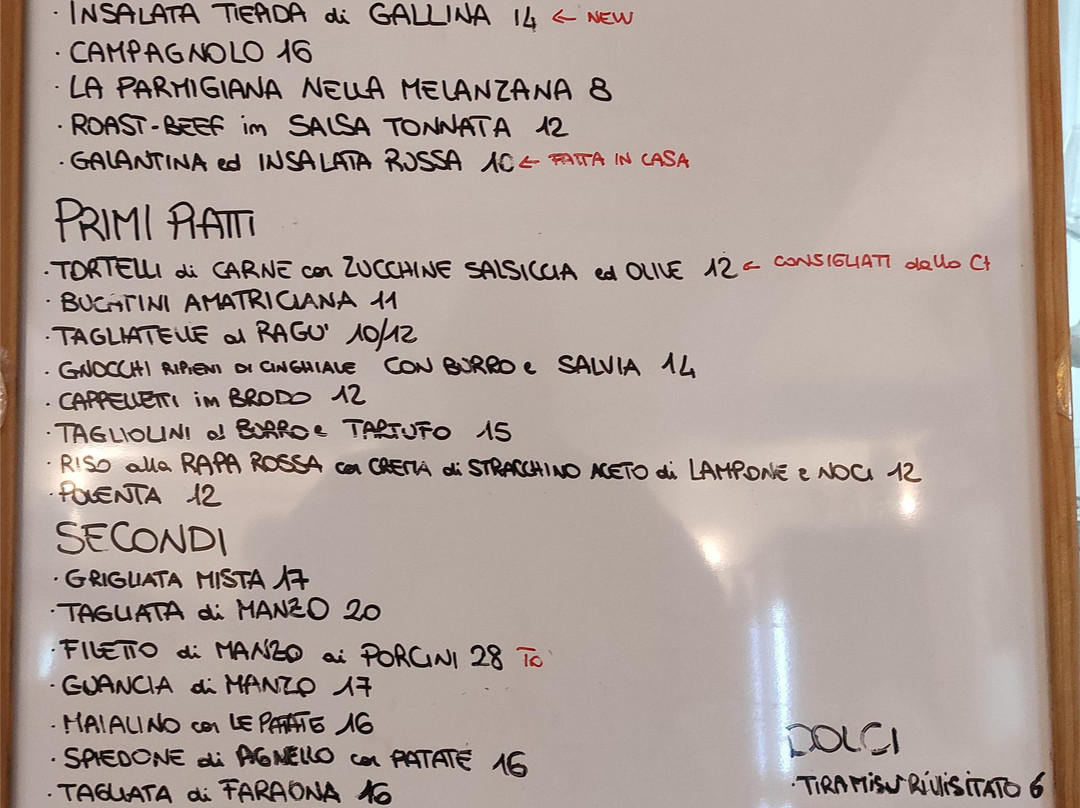 · INSALATA TIEPIDA di GALLINA 14 ← NEW
· CAMPAGNOLO 16
· LA PARMIGIANA NELLA MELANZANA 8
· ROAST-BEEF in SALSA TONNATA 12
· GALANTINA ed INSALATA RUSSA 10 ← FATTA IN CASA
PRIMI PIATTI
· TORTELLI di CARNE con ZUCCHINE SALSICCIA ed OLIVE 12 ← CONSIGLIATI dallo Ct
· BUCATINI AMATRICIANA 11
· TAGLIATELLE al RAGU' 10/12
· GNOCCHI RIPIENI DI CINGHIALE CON BURRO e SALVIA 14
· CAPPELLETTI in BRODO 12
· TAGLIOLINI al BURRO e TARTUFO 15
· RISO alla RAPA ROSSA con CREMA di STRACCHINO ACETO di LAMPONE e NOCI 12
· POLENTA 12
SECONDI
· GRIGLIATA MISTA 17
· TAGLIATA di MANZO 20
· FILETTO di MANZO ai PORCINI 28
· GUANCIA di MANZO 17
· MAIALINO con LE PATATE 16
· SPIEDONE di AGNELLO con PATATE 16
· TAGLIATA di FARAONA 16
DOLCI
· TIRAMISU' RIVISITATO 6